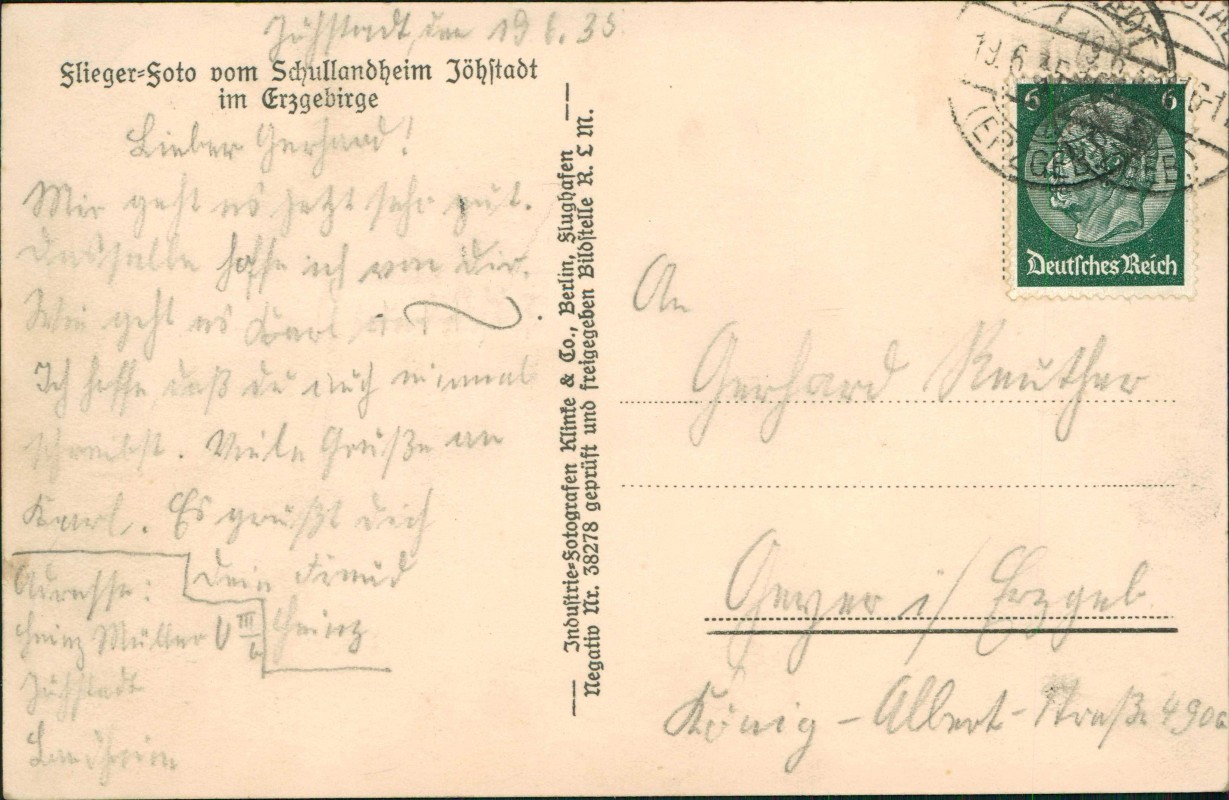 Jöhstadt, den 19.6.35
Flieger=Foto vom Schullandheim Jöhstadt
im Erzgebirge
Lieber Gerhard!
Mir geht es jetzt sehr gut.
Dasselbe hoffe ich von Dir.
Wie geht es Karl
Ich hoffe daß du auch einmal
schreibst. Viele Grüße an
Karl. Es grüßt dich
dein Freund
Heinz
Adresse:
Heinz Müller
Jöhstadt
Landheim
Industrie=Fotografen Klinke & Co., Berlin, Flughafen
Negativ Nr. 38278 geprüft und freigegeben Bildstelle R. L M.
19.6.35
(ERZGEBIRGE)
6 6
Deutsches Reich
An
Gerhard Reuther
Geyer i/Erzgeb.
König-Albert-Straße